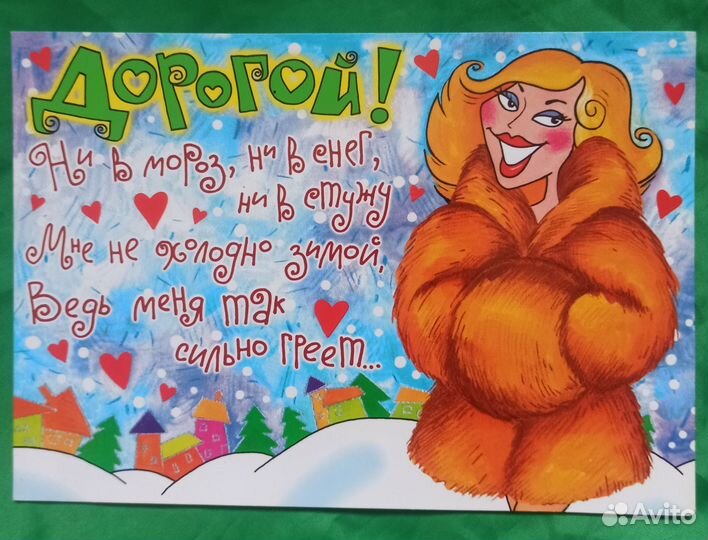 Дорогой!
Ни в мороз, ни в снег,
ни в стужу
Мне не холодно зимой,
Ведь меня так
сильно греет...
Avito